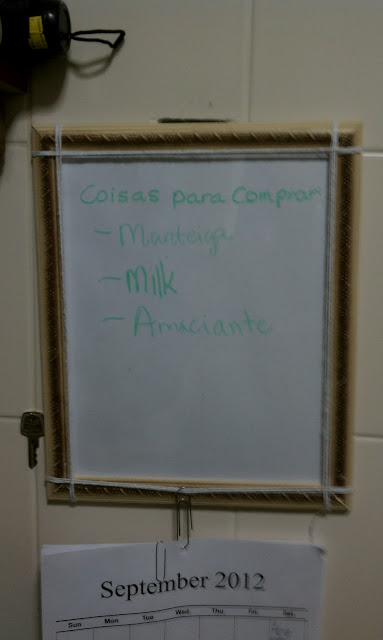 Coisas para Comprar
- Manteiga
- Milk
- Amaciante
September 2012
Sun. Mon. Tue. Wed. Thu. Fri. Sat.